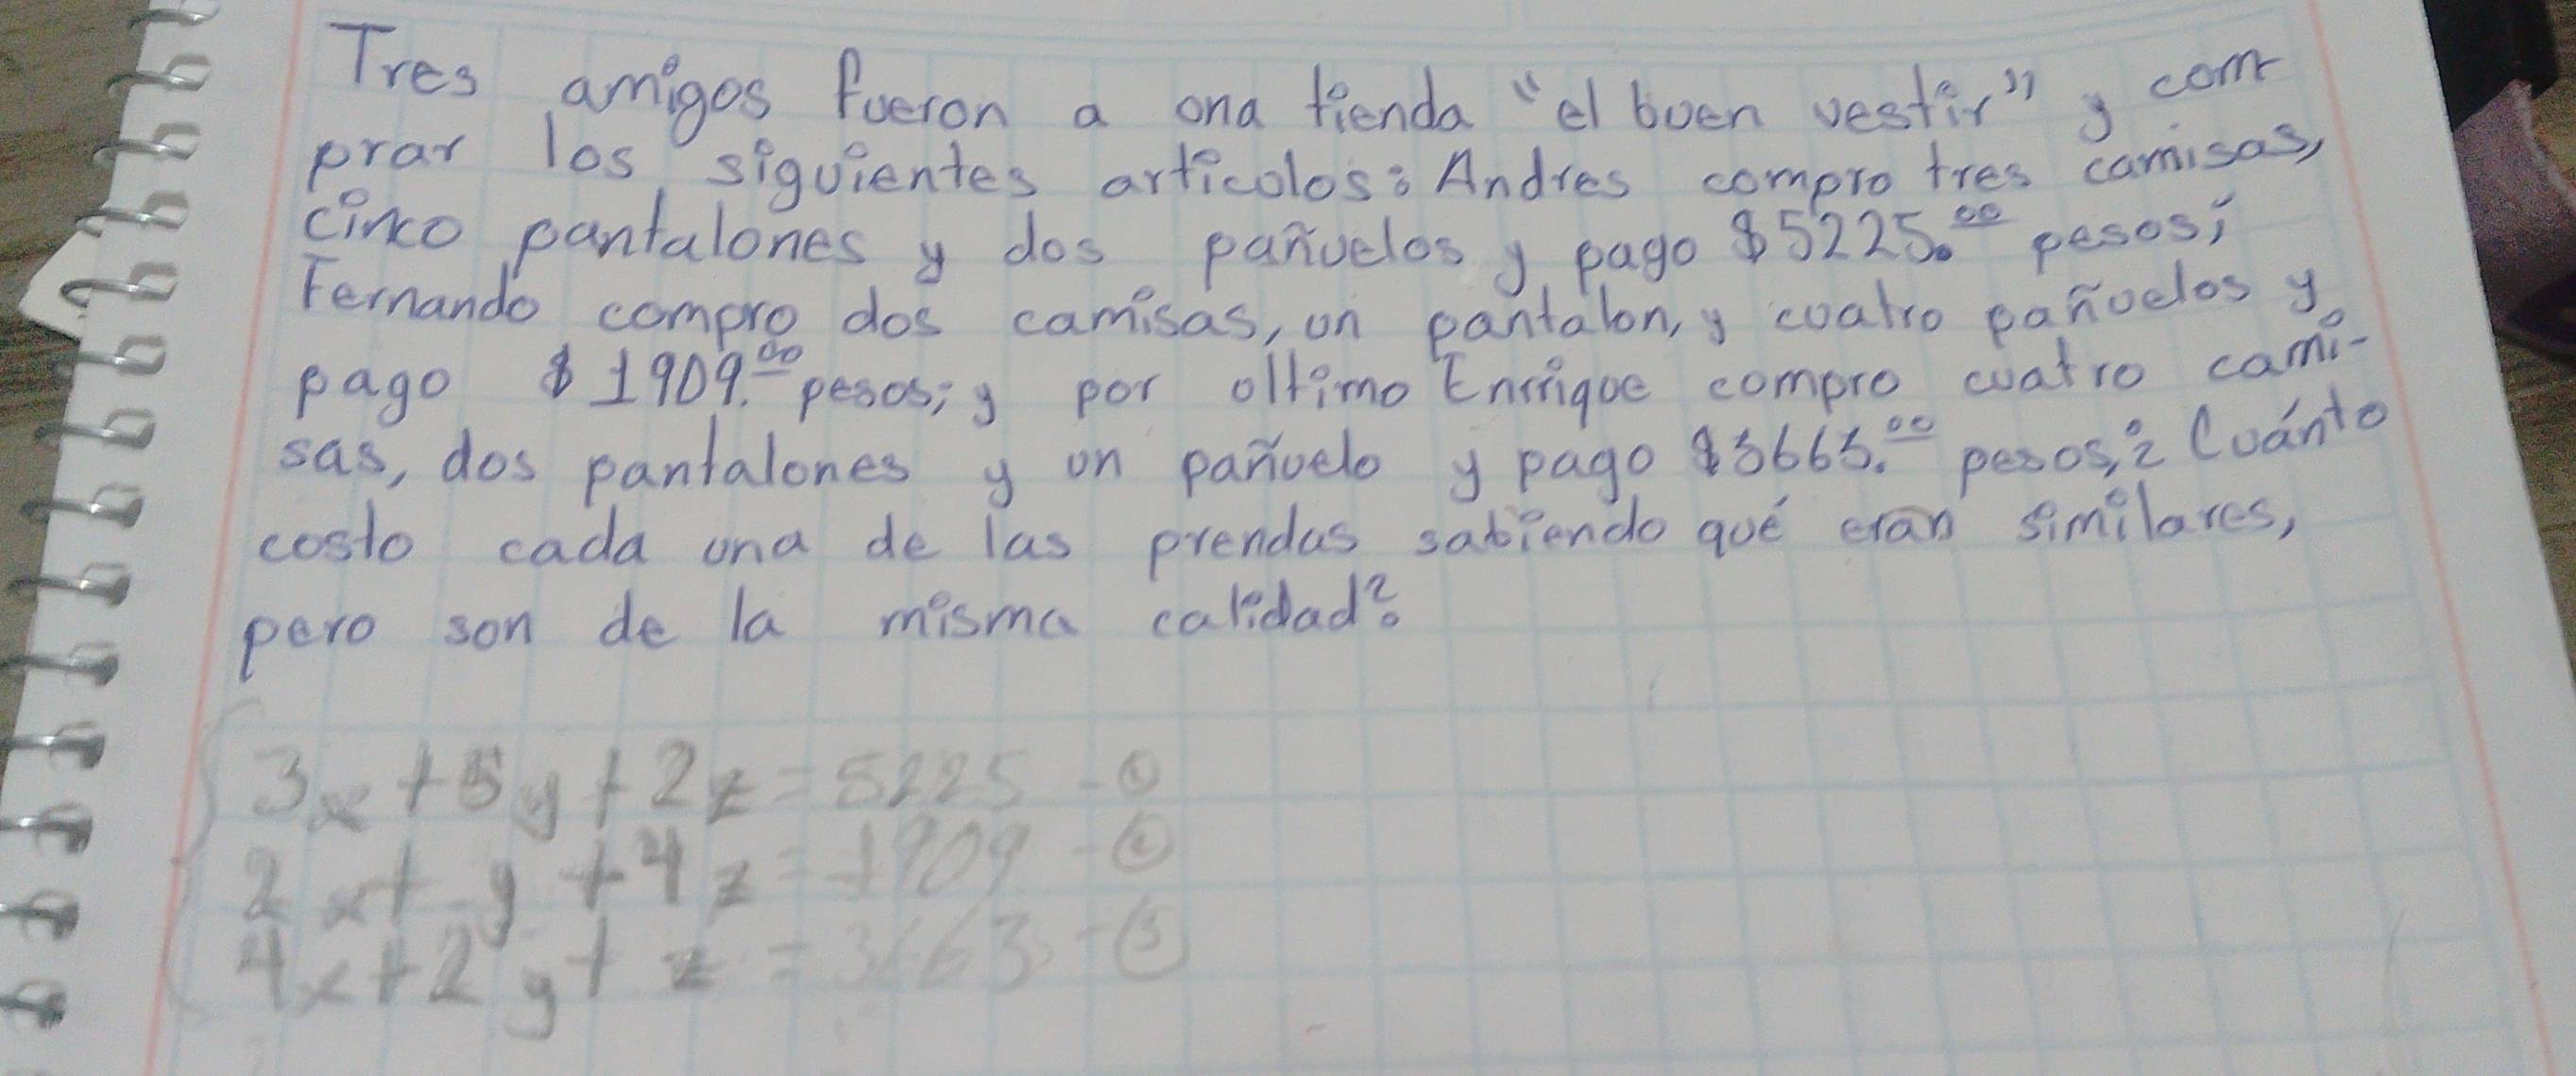 Tres amigos fueron a una tienda "el buen vestir" y com-
prar los siguientes articulos: Andres compro tres camisas,
cinco pantalones y dos pañuelos y pago $5225.00 pesos;
Fernando compro dos camisas, un pantalon, y cuatro pañuelos y
pago $1909.00 pesos; y por ultimo Enrrique compro cuatro cami-
sas, dos pantalones y un pañuelo y pago $3663.00 pesos; ¿Cuánto
costo cada una de las prendas sabiendo qué eran similares,
pero son de la misma calidad?
3x+5y+2z=5225 -①
2x+y+4z=1909 -②
4x+2y+z=3663 -③